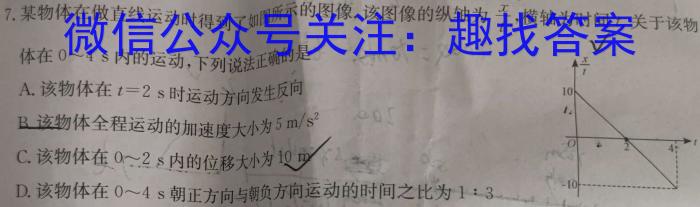 7. 某物体在做直线运动时得到了如图所示的图像,该图像的纵轴为 x/t,横轴为时间t,关于该物
微信公众号关注:趣找答案
体在 0~4 s 内的运动,下列说法正确的是
A. 该物体在 t=2 s 时运动方向发生反向
B. 该物体全程运动的加速度大小为 5 m/s²
C. 该物体在 0~2 s 内的位移大小为 10 m
D. 该物体在 0~4 s 朝正方向与朝负方向运动的时间之比为 1∶3
x/t
10
O
2
4
t
-10